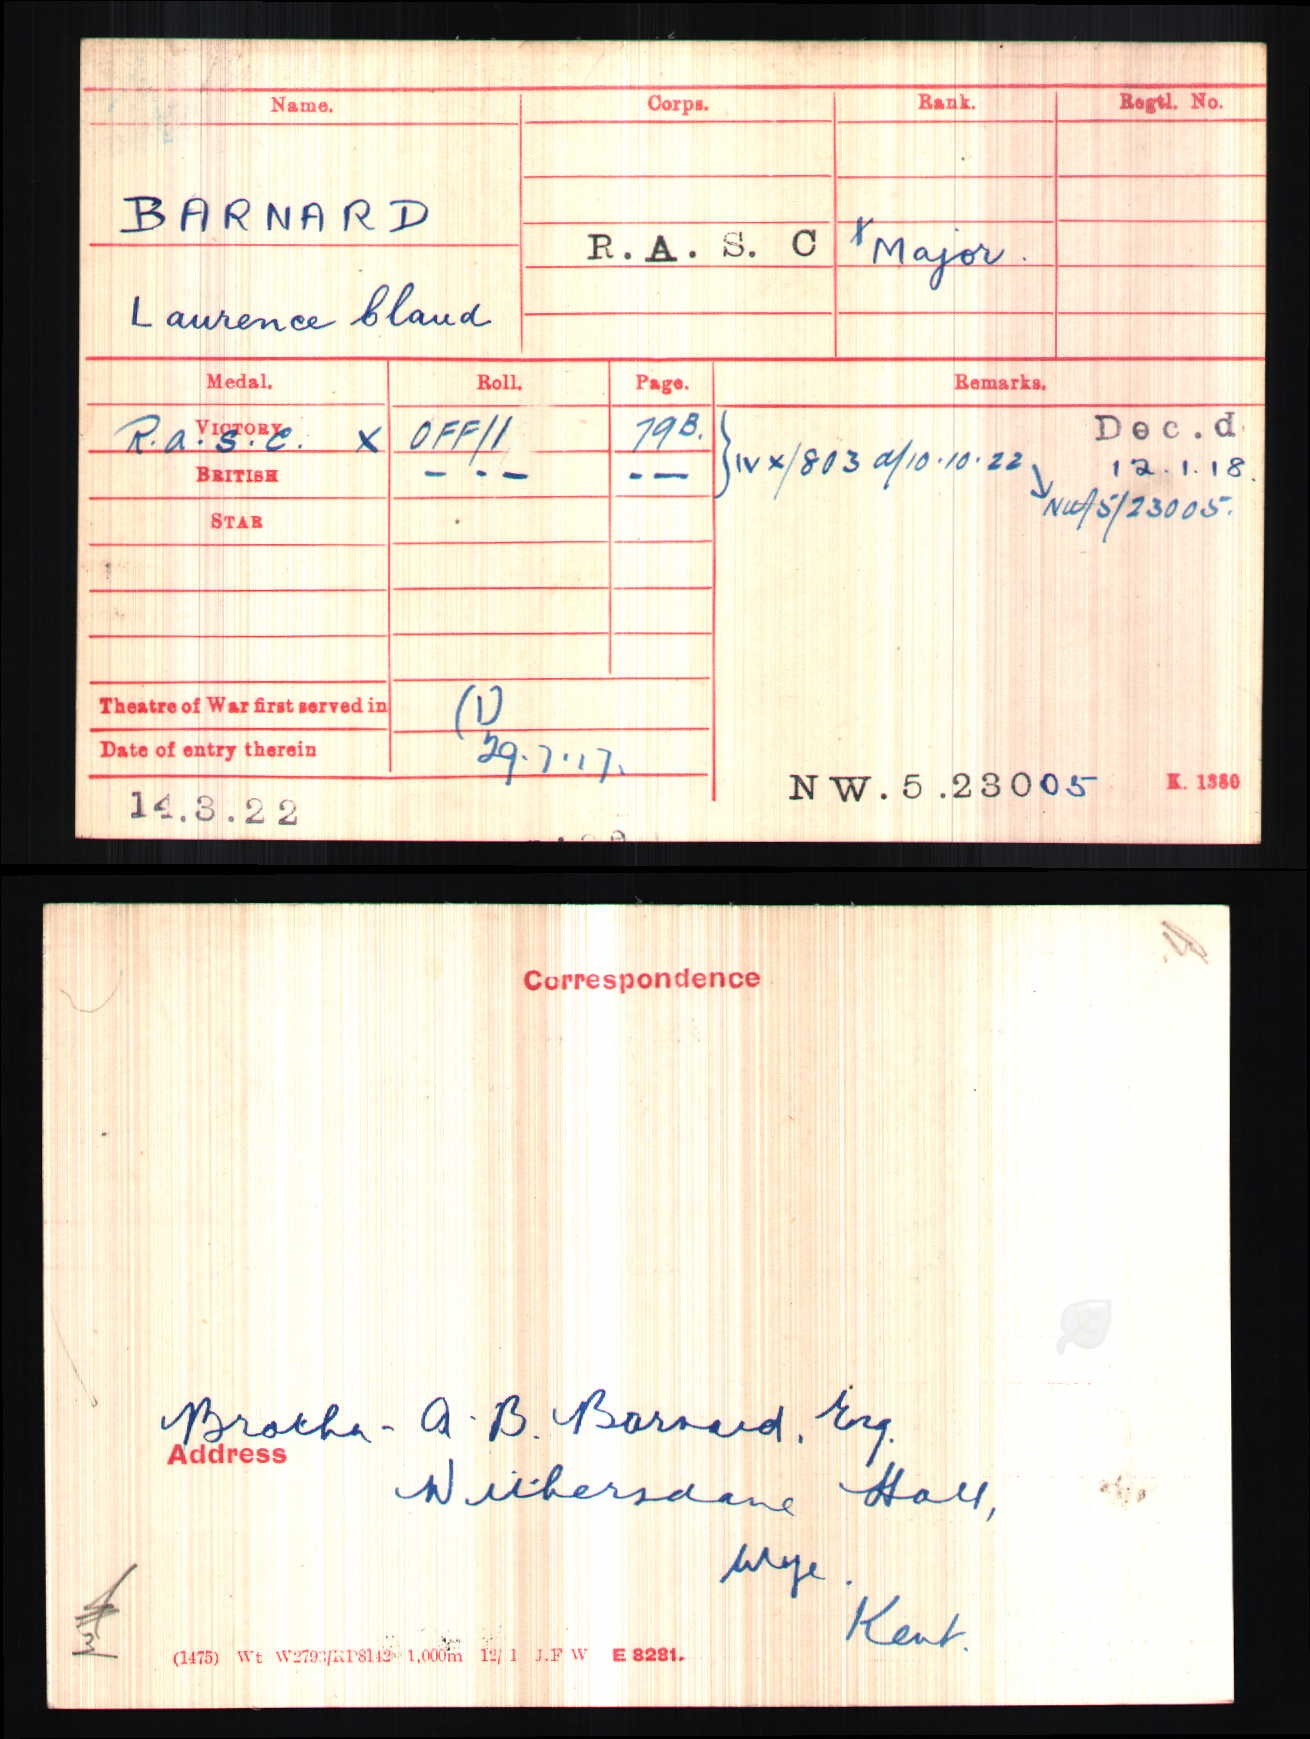 Name. Corps. Rank. Regtl. No.
BARNARD
R.A.S.C x Major.
Laurence Claud
Medal. Roll. Page. Remarks.
VICTORY R.A.S.C. X OFF/1 79B. Dec.d
BRITISH - - - - - } IVX/803 d/10.10.22 12.1.18.
NW/5/23005.
STAR
Theatre of War first served in (1)
Date of entry therein 29.7.17.
NW.5.23005 K. 1380
14.3.22
Correspondence
Brother - A. B. Barnard, Esq.
Address
Withersdane Hall,
Wye.
Kent.
3
(1475) Wt 1,000m J.F W E 8281.